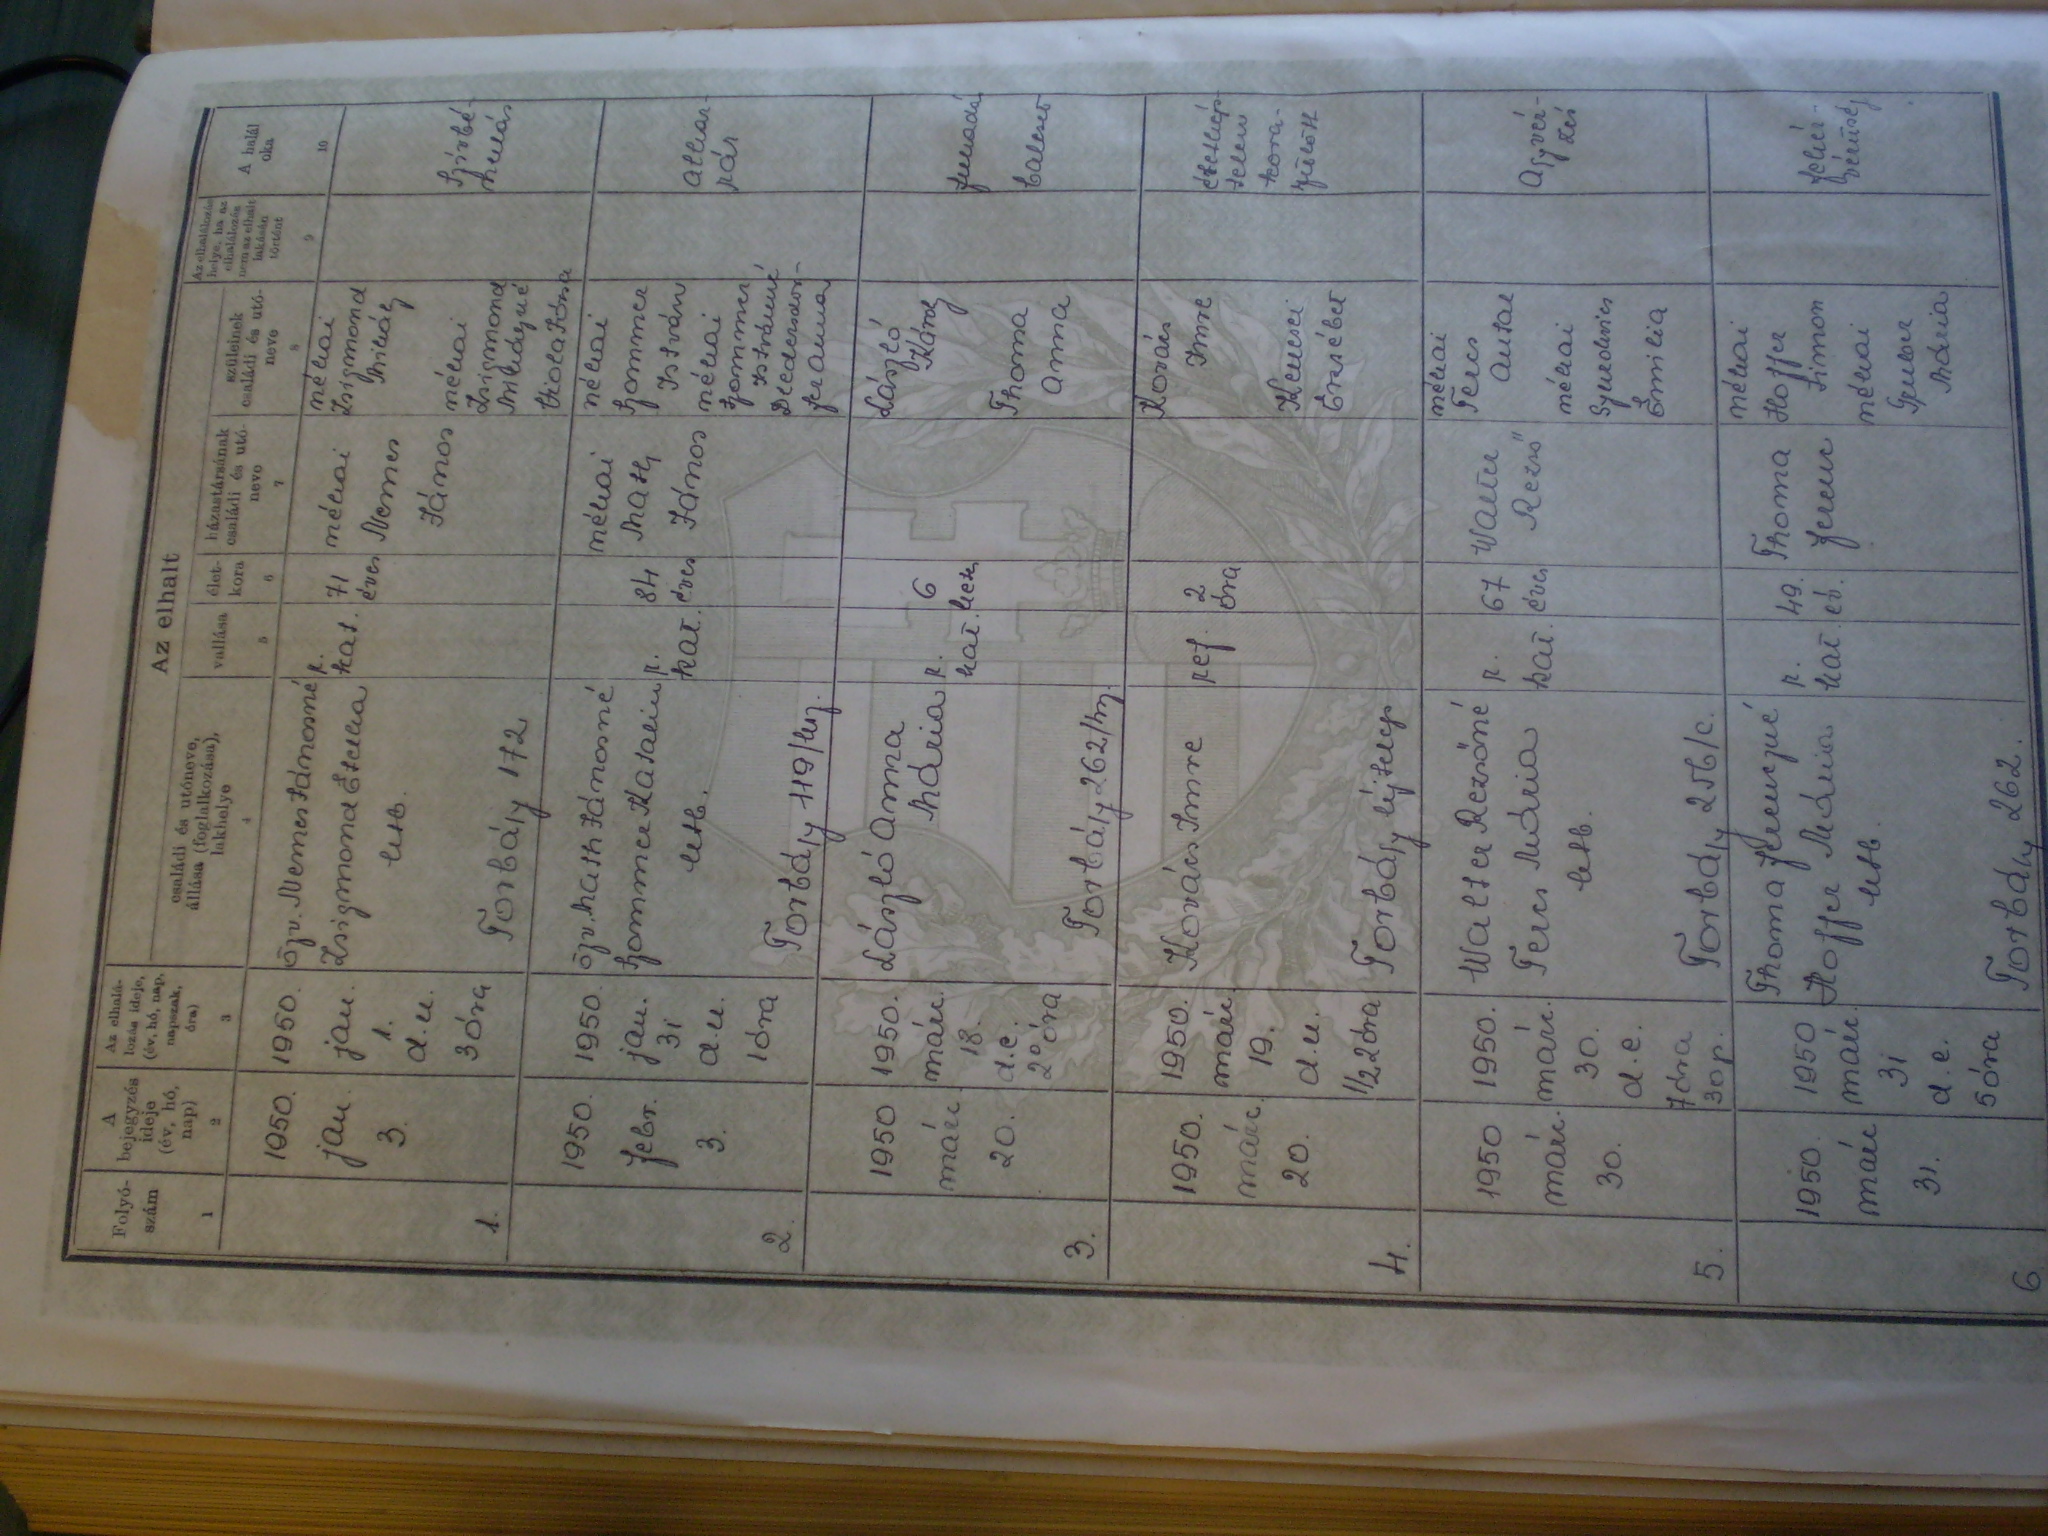 Az elhalt
Folyó-
szám
A
bejegyzés
ideje
(év, hó,
nap)
Az elhalá-
lozás ideje,
(év, hó, nap,
napszak,
óra)
családi és utóneve,
állása (foglalkozása),
lakhelye
vallása
élet-
kora
házastársának
családi és utó-
neve
szüleinek
családi és utó-
neve
Az elhalálozás
helye, ha az
elhalálozás
nem az elhalt
lakásán
történt
A halál
oka
1
2
3
4
5
6
7
8
9
10
1.
1950.
jan.
3.
1950.
jan.
1.
d.u.
3 óra
özv. Nemes Jánosné
Zsigmond Etelka
Torbágy 172
r.
kat.
71
éves
néhai
Nemes
János
néhai
Zsigmond
Mihály
néhai
Zsigmond
Mihályné
Szívbé-
nulás
2.
1950.
febr.
3.
1950.
jan.
31
d.u.
1 óra
özv. Math Jánosné
Hommer Katalin
Torbágy 119/hsz.
r.
kat.
84
éves
néhai
Math
János
néhai
Hommer
István
néhai
Hommer
Istvánné
3.
1950
márc.
20.
1950.
márc.
18.
d.e.
László Anna
Mária
Torbágy 262/hsz.
r.
kat.
6
László
Károly
Thoma
Anna
baleset
4.
1950.
márc.
20.
1950.
márc.
19.
d.u.
1/2 2 óra
Kovács Imre
Torbágy légtelep
ref.
2
óra
Kovács
Imre
Kenesei
Erzsébet
életkép-
telen
kora-
szülött
5.
1950
márc.
30.
1950.
márc.
30.
d.e.
7 óra
30 p.
Walter Rezsőné
Teres Mária
Torbágy 256/c.
r.
kat.
67
éves
Walter
Rezső
néhai
Teres
Antal
néhai
Emilia
Agyvér-
zés
6
1950.
márc
31.
1950
márc.
31
d.e.
5 óra
Thoma Ferencné
Hoffer Mária
Torbágy 262.
r.
kat.
49.
év.
Thoma
Ferenc
néhai
Hoffer
Simon
néhai
Mária